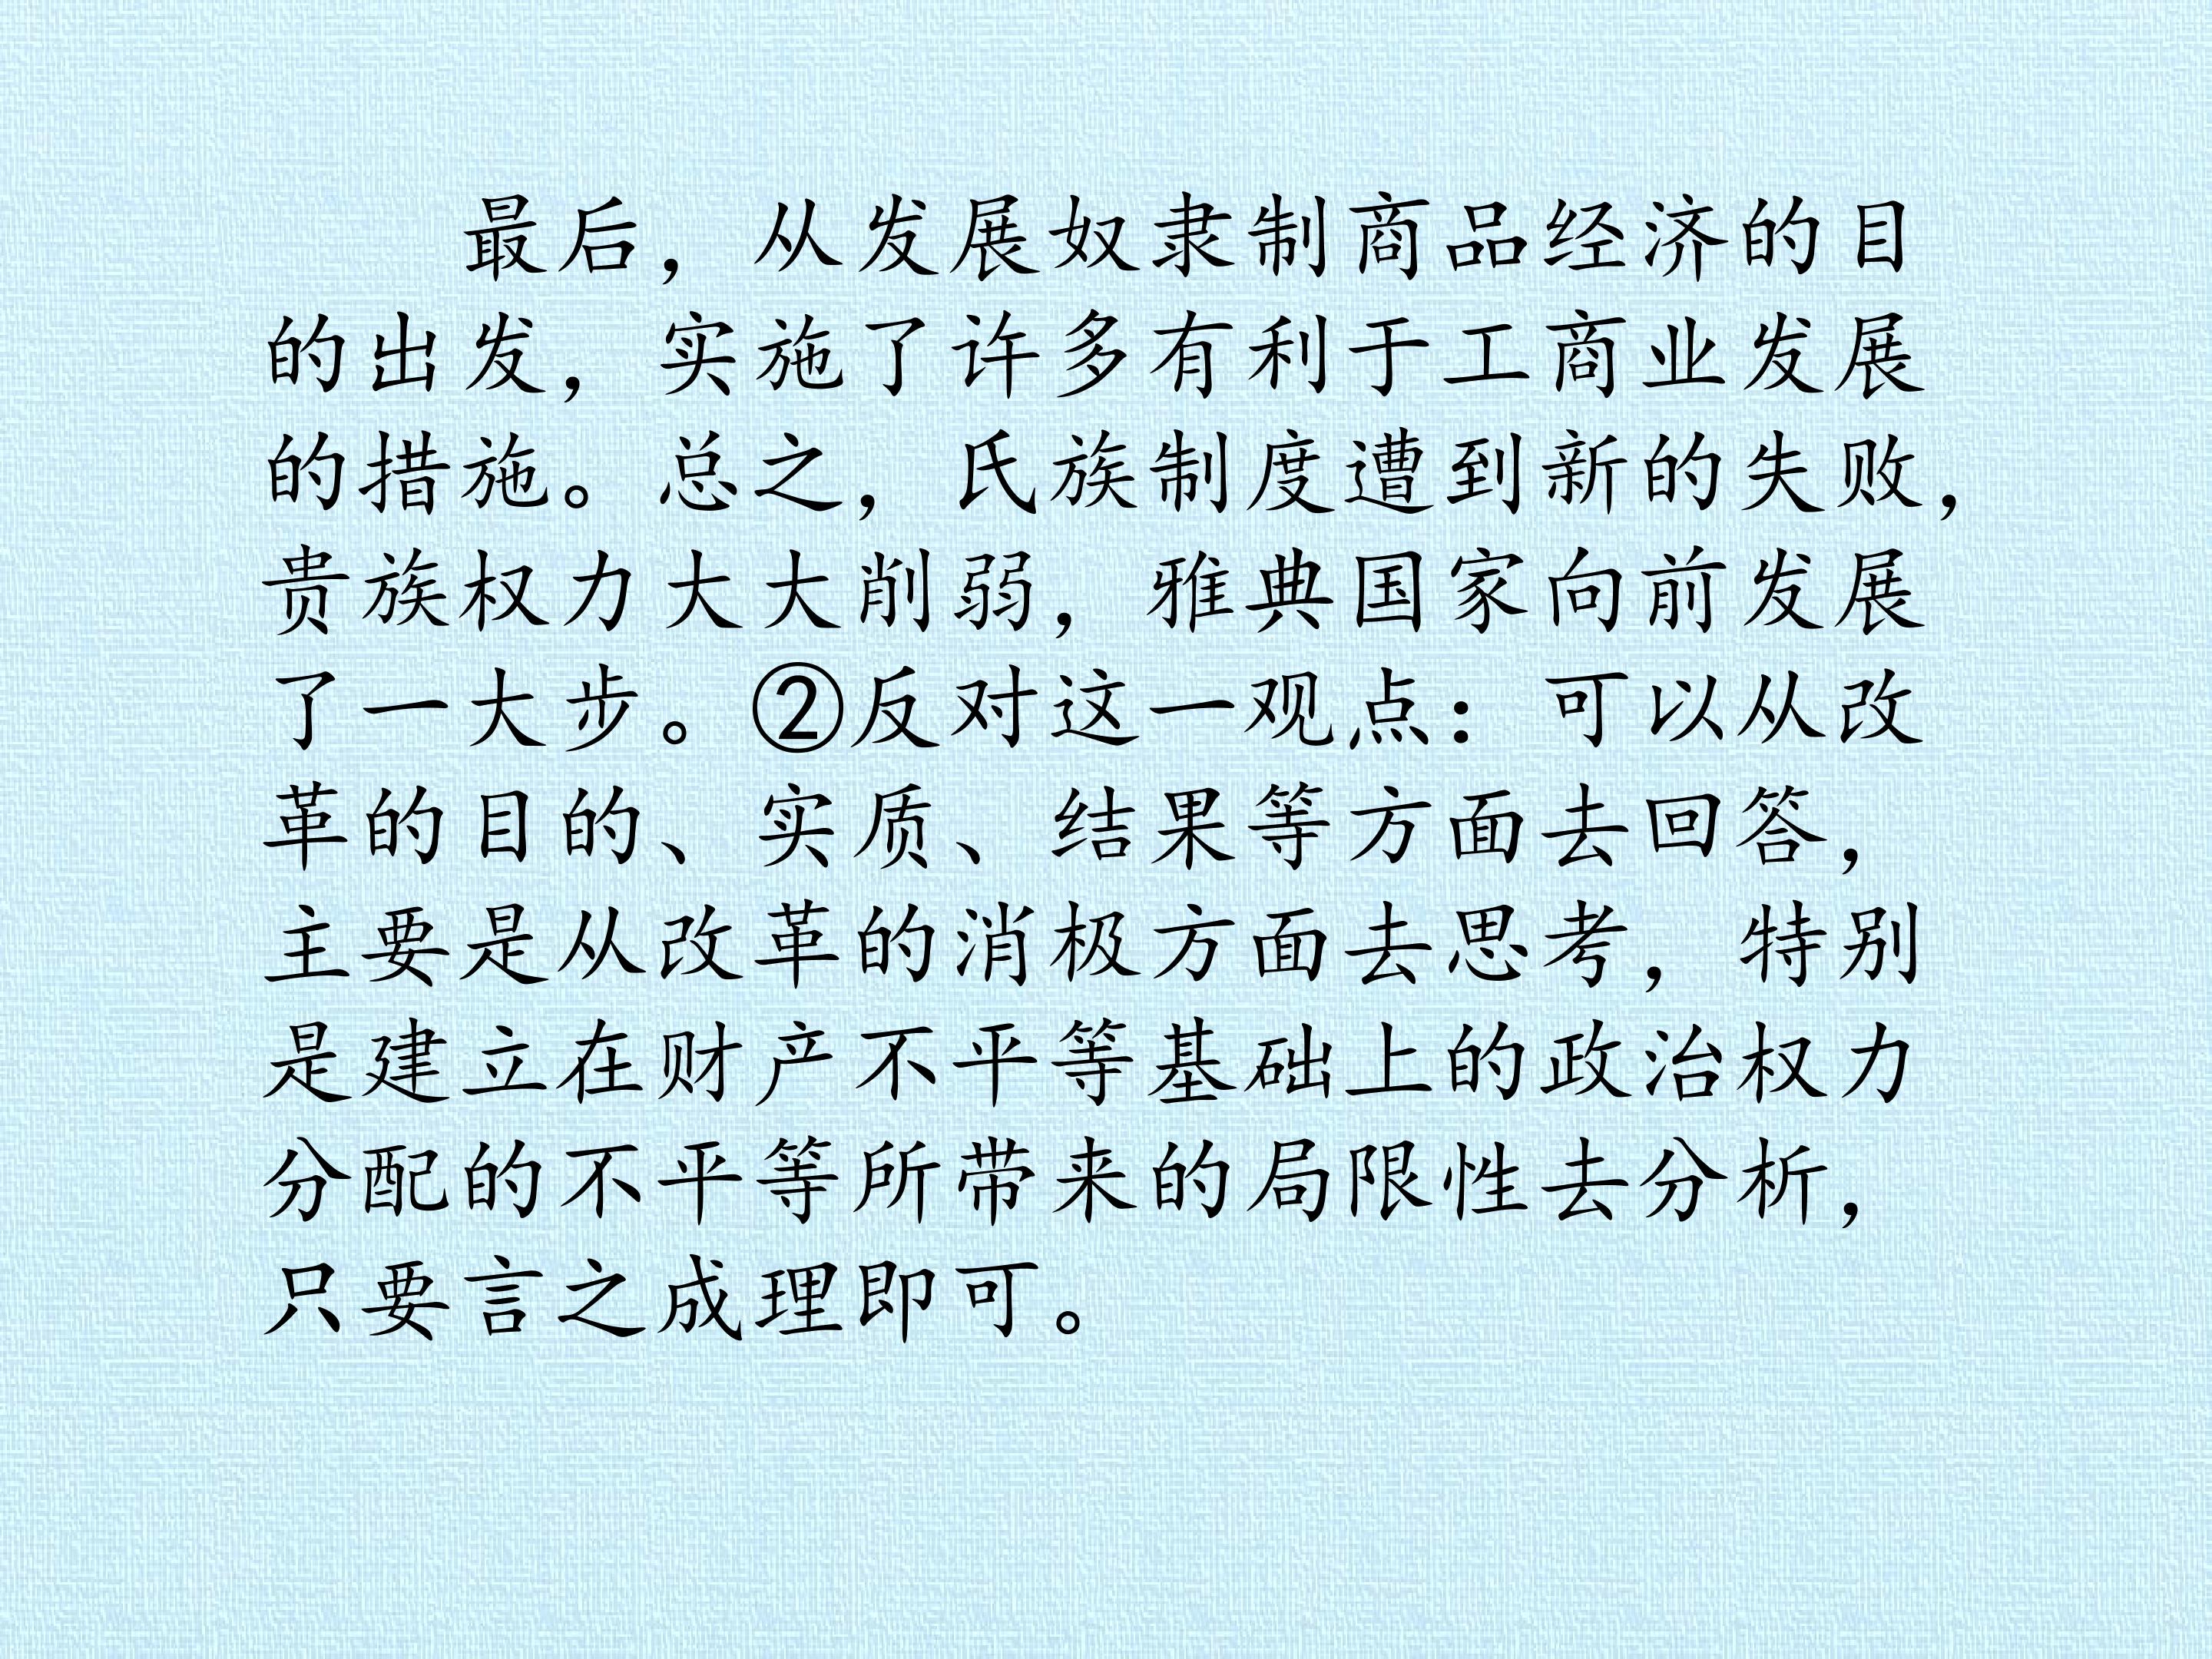 最后，从发展奴隶制商品经济的目
的出发，实施了许多有利于工商业发展
的措施。总之，氏族制度遭到新的失败，
贵族权力大大削弱，雅典国家向前发展
了一大步。②反对这一观点：可以从改
革的目的、实质、结果等方面去回答，
主要是从改革的消极方面去思考，特别
是建立在财产不平等基础上的政治权力
分配的不平等所带来的局限性去分析，
只要言之成理即可。